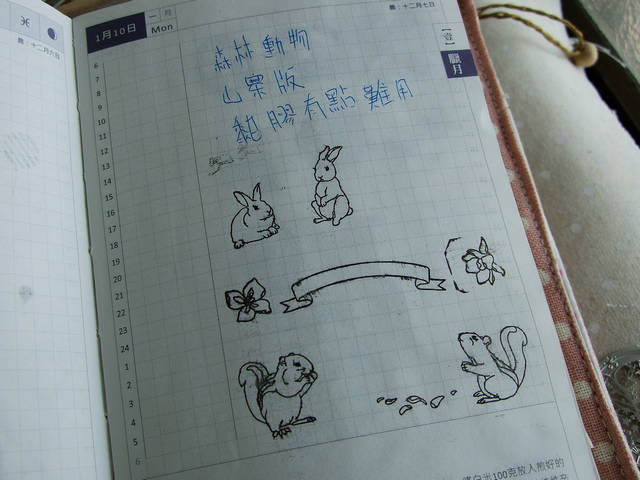 農：十二月六日
1月10日
一月
Mon
農：十二月七日
【壹】
臘月
森林動物
山寨版
黏膠有點難用
6
7
8
9
10
11
12
13
14
15
16
17
18
19
20
21
22
23
24
1
2
3
4
5
6
100克放入煎好的